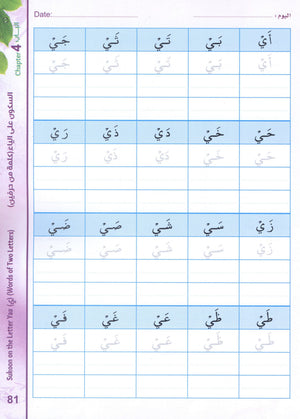 اليوم :
Date:
أَيْ بَيْ تَيْ ثَيْ جَيْ
أَيْ بَيْ تَيْ ثَيْ جَيْ
حَيْ خَيْ دَيْ ذَيْ رَيْ
حَيْ خَيْ دَيْ ذَيْ رَيْ
زَيْ سَيْ شَيْ صَيْ ضَيْ
زَيْ سَيْ شَيْ صَيْ ضَيْ
طَيْ ظَيْ عَيْ غَيْ فَيْ
طَيْ ظَيْ عَيْ غَيْ فَيْ
الباب
Chapter 4
السكون على الياء (كلمة من حرفين)
Sukoon on the Letter Yaa (يْ) (Words of Two Letters)
81